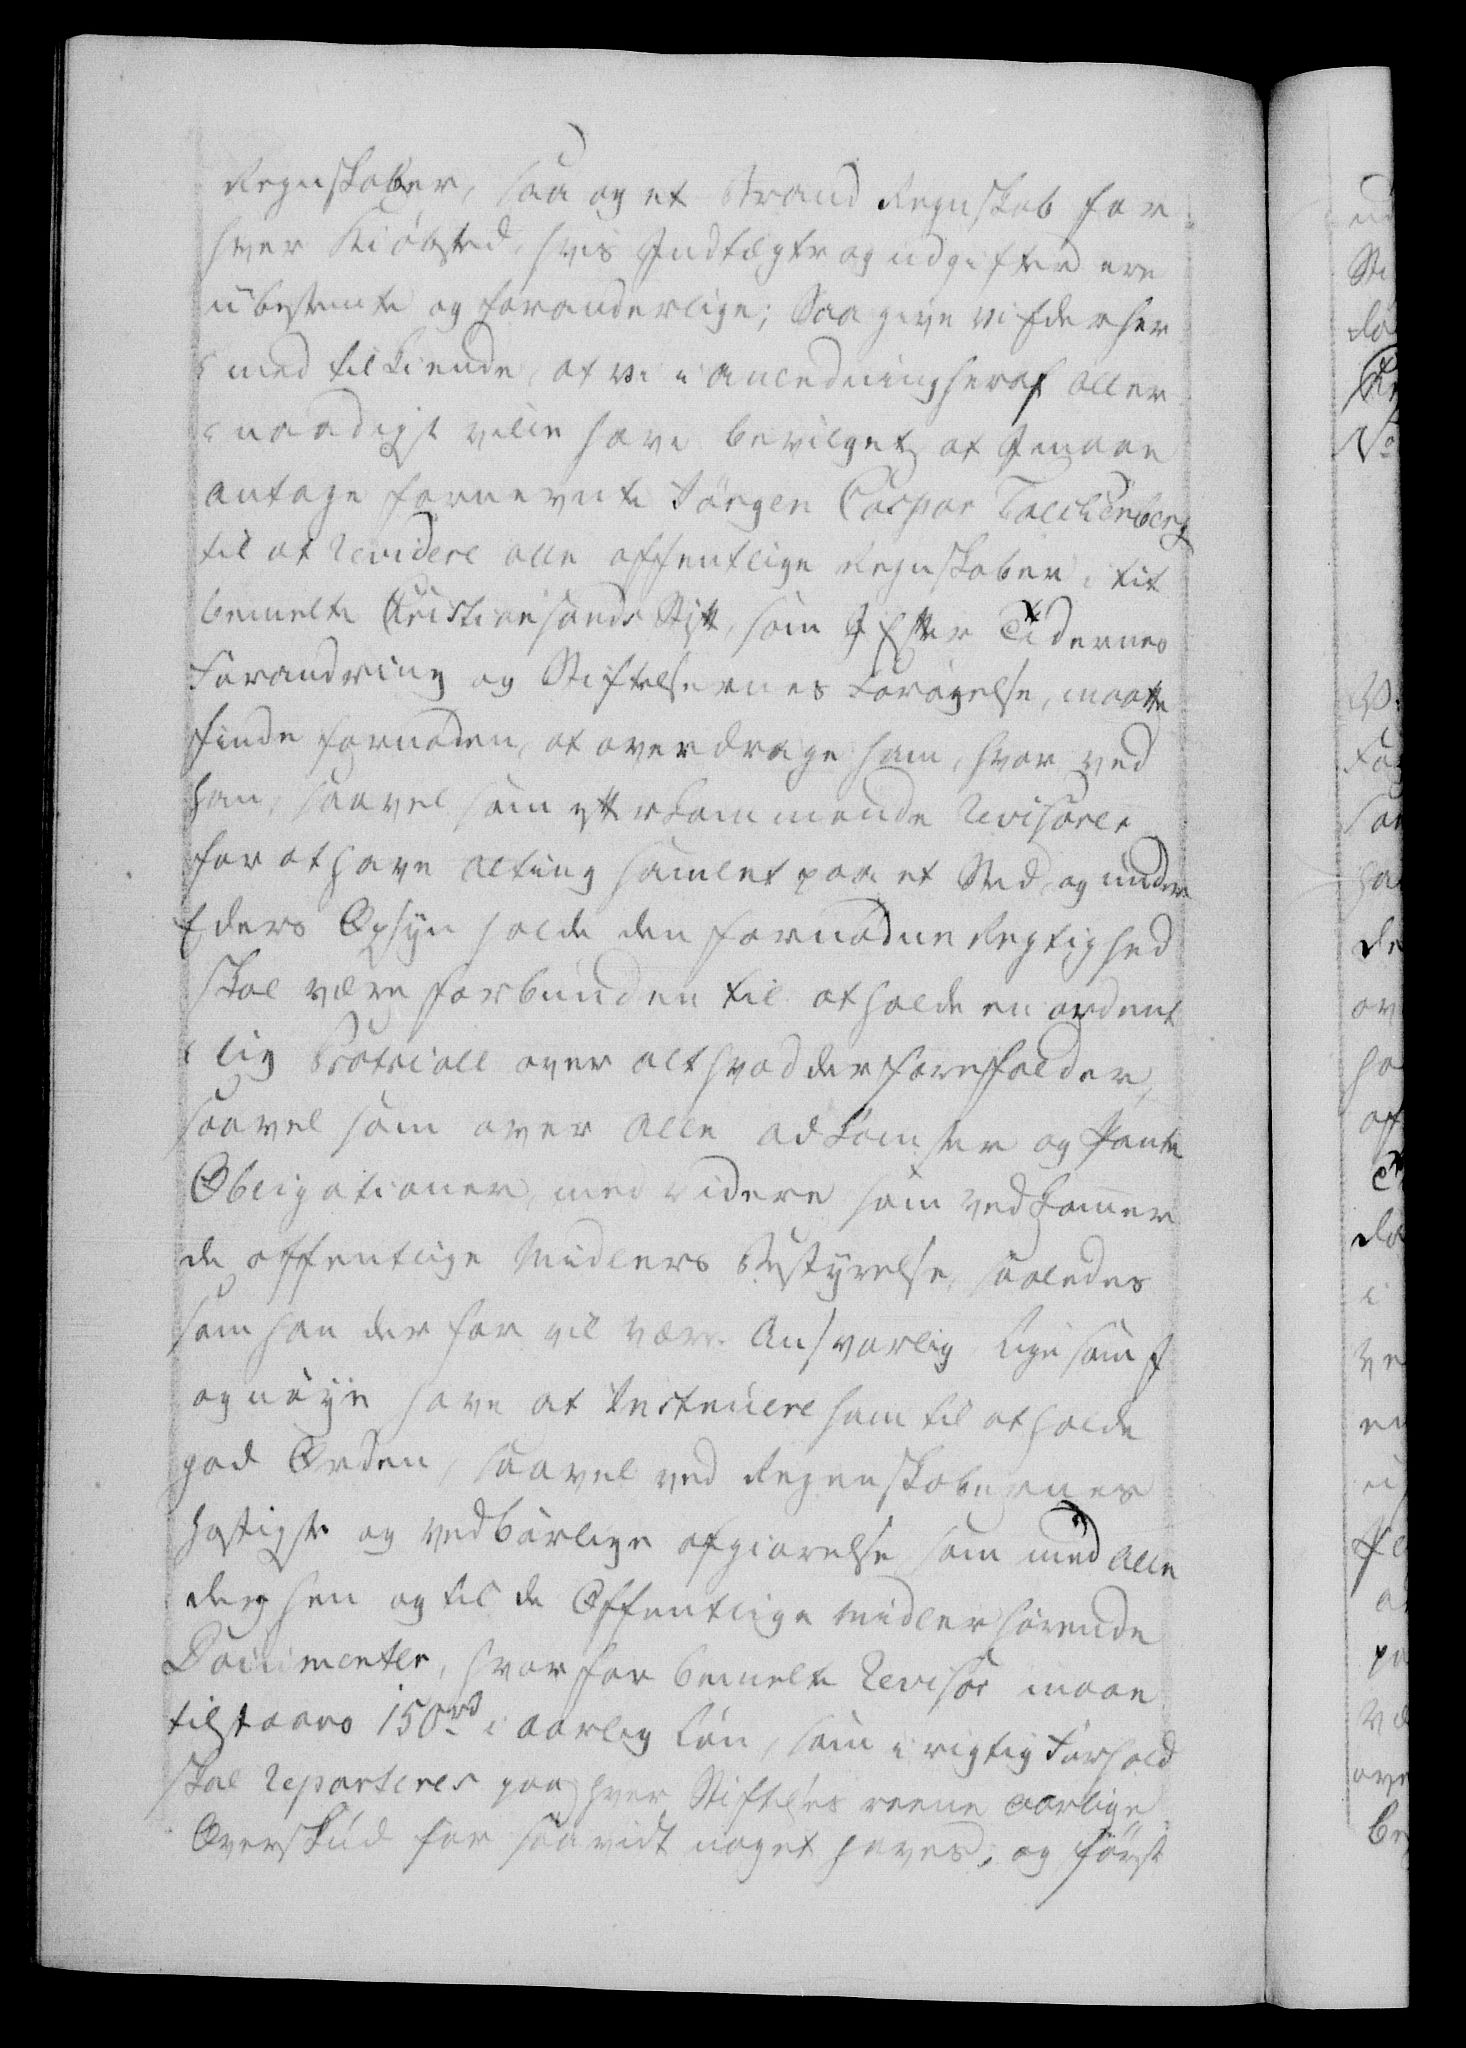 Regnskaber, saa og et Brand Regnskab for
hver Kiöbsted, hvis Indtægter og udgifter ere
ubestemte og foranderlige; Saa give vi Eder her
med tilkiende, at vi i anledning heraf aller
naadigst ville have bevilget, at I maae
antage fornevnte Jörgen Caspar
til at Revidere alle offentlige Regnskaber i tit
bemelte Christiansands Stift, som I Efter Tidernes
Forandring og Stiftelsernes Forögelse, maatte
finde fornöden, at overdrage ham, hvor ved
han, saavel som efterkommende Revisorer
for at have alting samlet paa et Sted, og under
Eders Opsyn holde den fornödne Rigtighed
skal være forbunden til at holde en ordent
lig Protocoll over alt hvad der forefalder,
saavel som over alle adkomster og Pante
Obligationer, med videre som vedkommer
de offentlige Midlers Bestyrelse, saaledes
som han der for vil være Ansvarlig ligesom I
og nöye have at Instruere ham til at holde
god Orden, saavel ved Regenskabernes
hastigste og vedbörlige afgiörelse som med alle
derhen og til de Offentlige Midler hörende
Documenter, hvor for bemelte Revisor maae
tilstaaes 150 rd i aarlig Lön, som i rigtig Forhold
skal Reparteres paa hver Stiftelses reene aarlige
Overskud for saavidt noget haves, og först